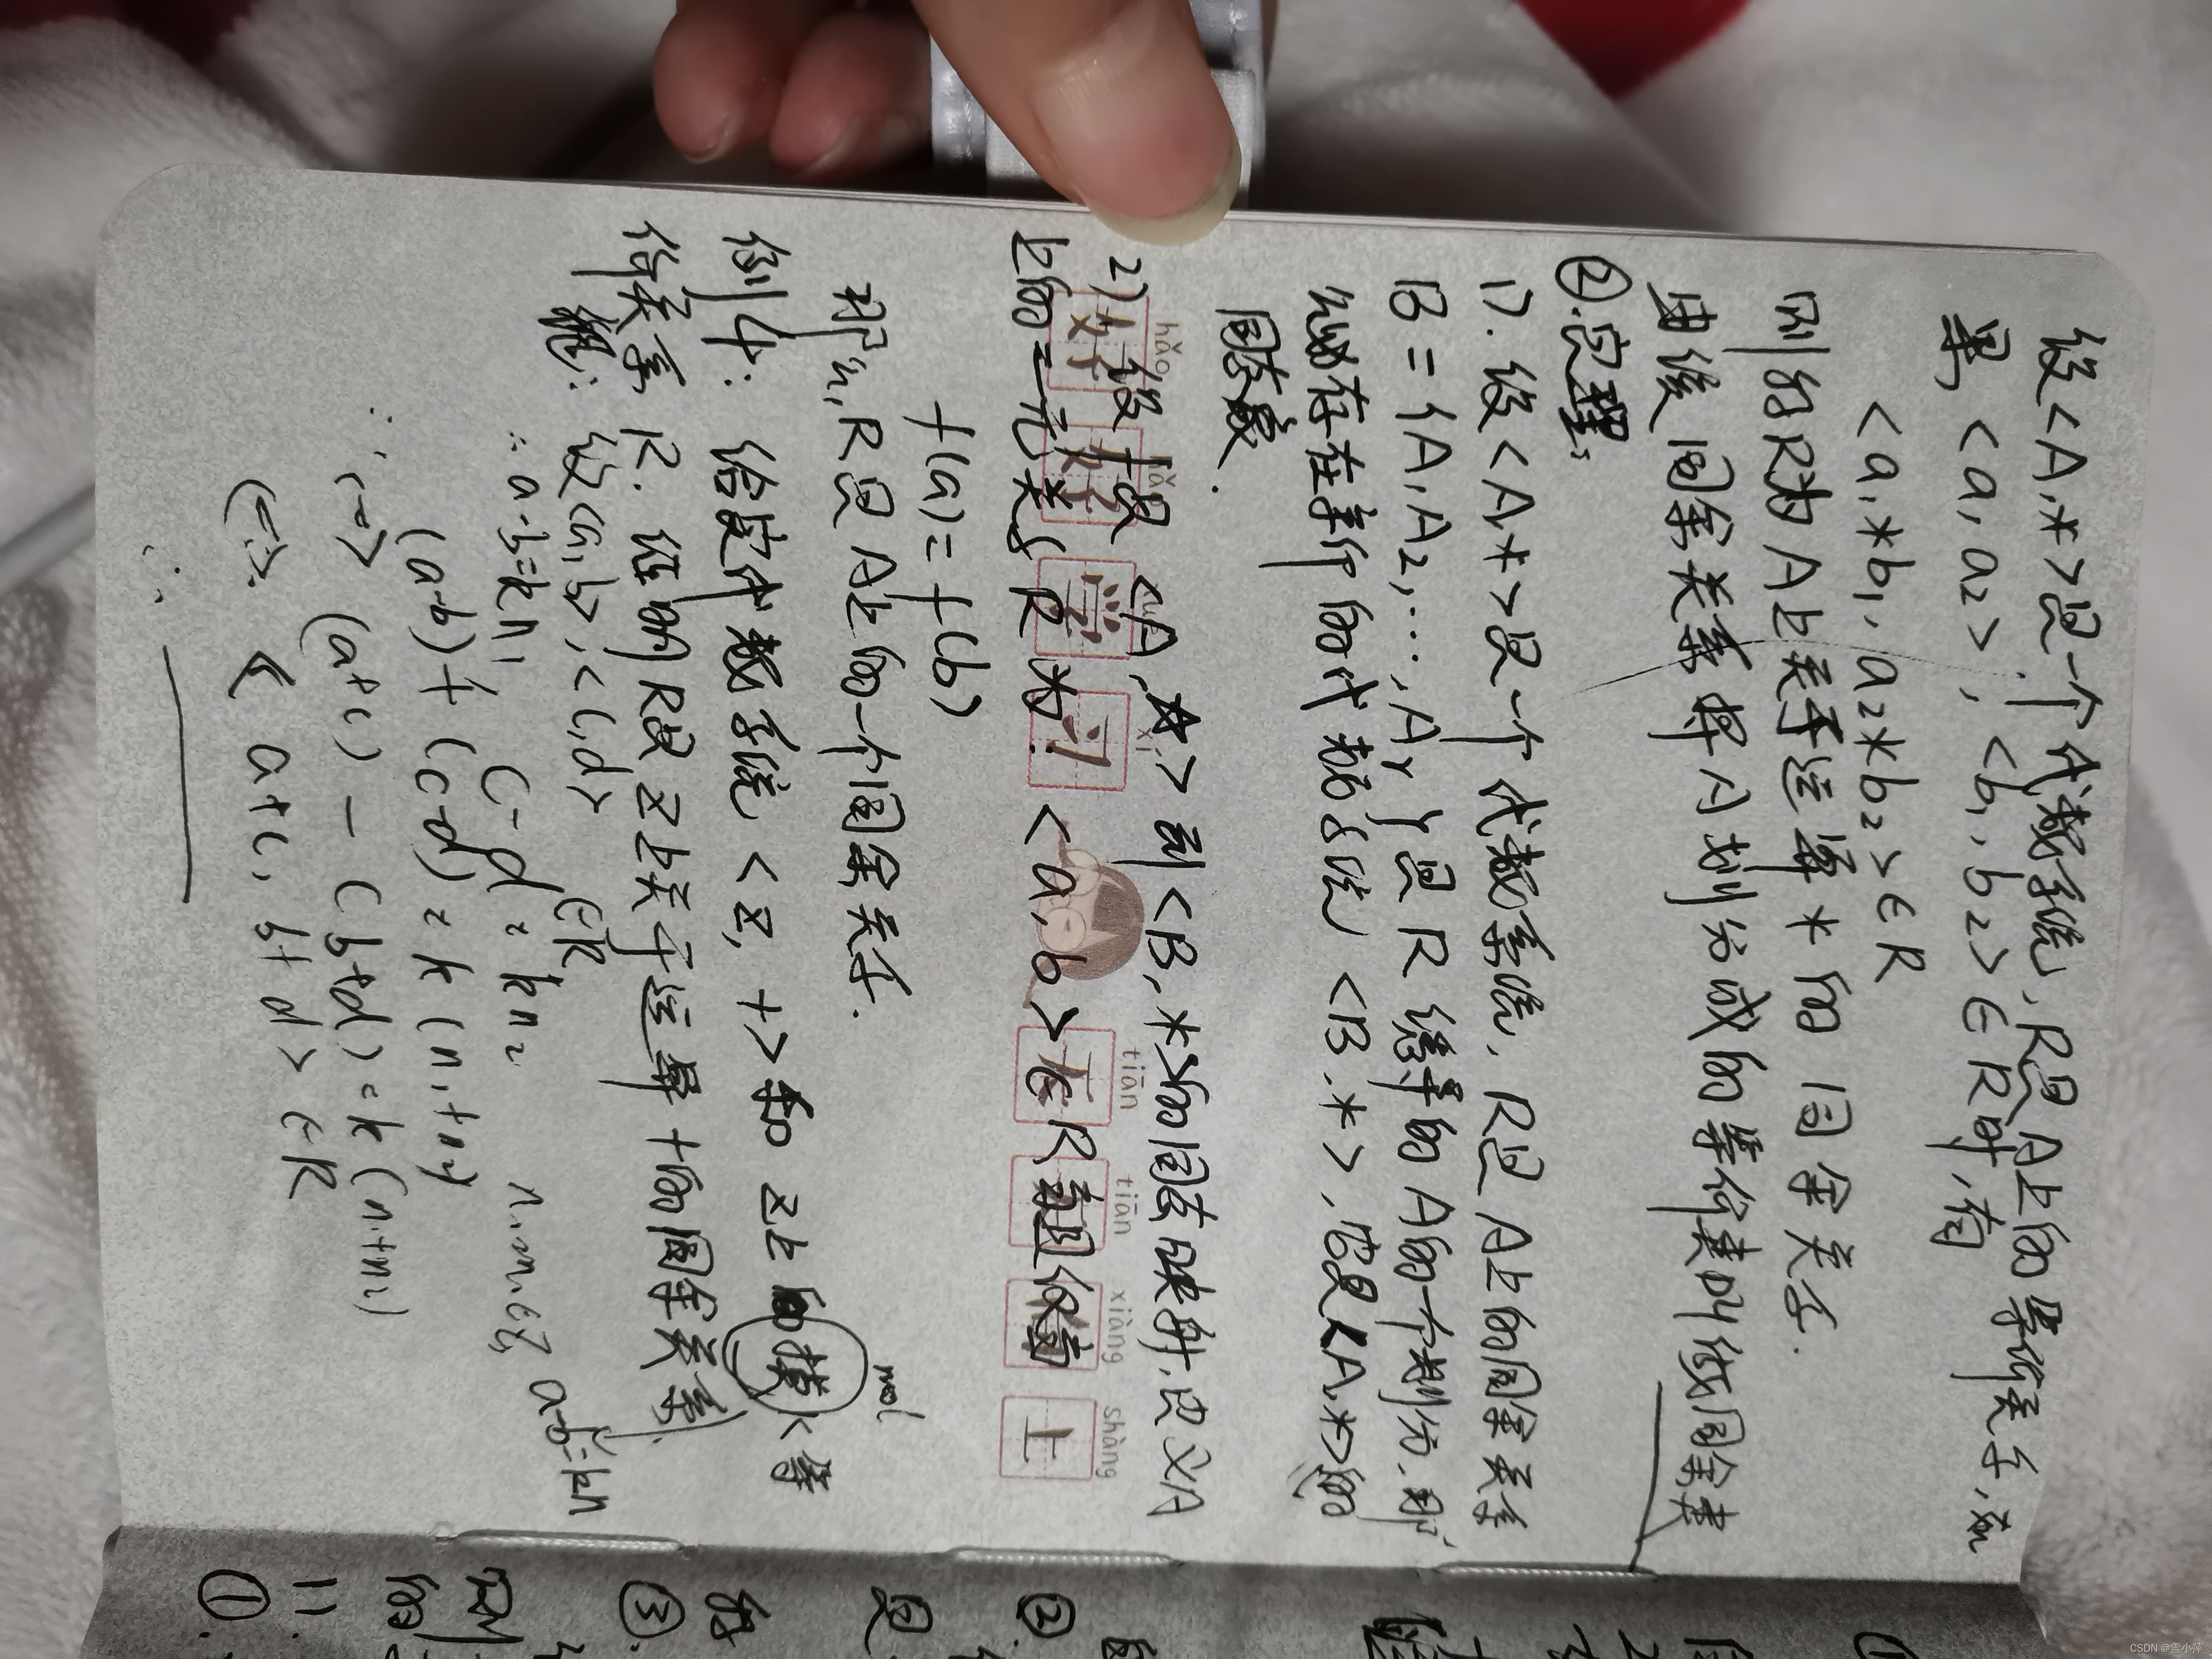 设<A,*>是一个代数系统,R是A上的等价关系,如
果,<a₁,a₂>,<b₁,b₂>∈R时,有
<a₁*b₁,a₂*b₂>∈R
则称R为A上关于运算*的同余关系.
由这同余关系将A划分成的等价类叫做同余类
②.定理:
1).设<A,*>是一个代数系统,R是A上的同余关系
B={A₁,A₂,…,Aᵣ}是R诱导的A的一个划分,那
么必存在新的代数系统<B,*>,它是<A,*>的
同态象.
2)设f是<A,☆>到<B,*>的同态映射,定义A
上的二元关系R为:<a,b>∈R当且仅当
f(a)=f(b)
那么,R是A上的一个同余关系.
例4:给定代数系统<Z,+>和Z上的模k等
价关系R.证明R是Z上关于运算+的同余关系.
mod
证:设<a,b>,<c,d>∈R
a-b=kn
∴a-b=kn₁ c-d=kn₂ n,m∈Z,
(a-b)+(c-d)=k(n₁+n₂)
∴ (a+c)-(b+d)=k(n₁+n₂)
∴ <a+c,b+d>∈R
好好学习 天天向上
hǎo hǎo xué xí tiān tiān xiàng shàng
②.
是
③.
则
①.
CSDN @雪小萍